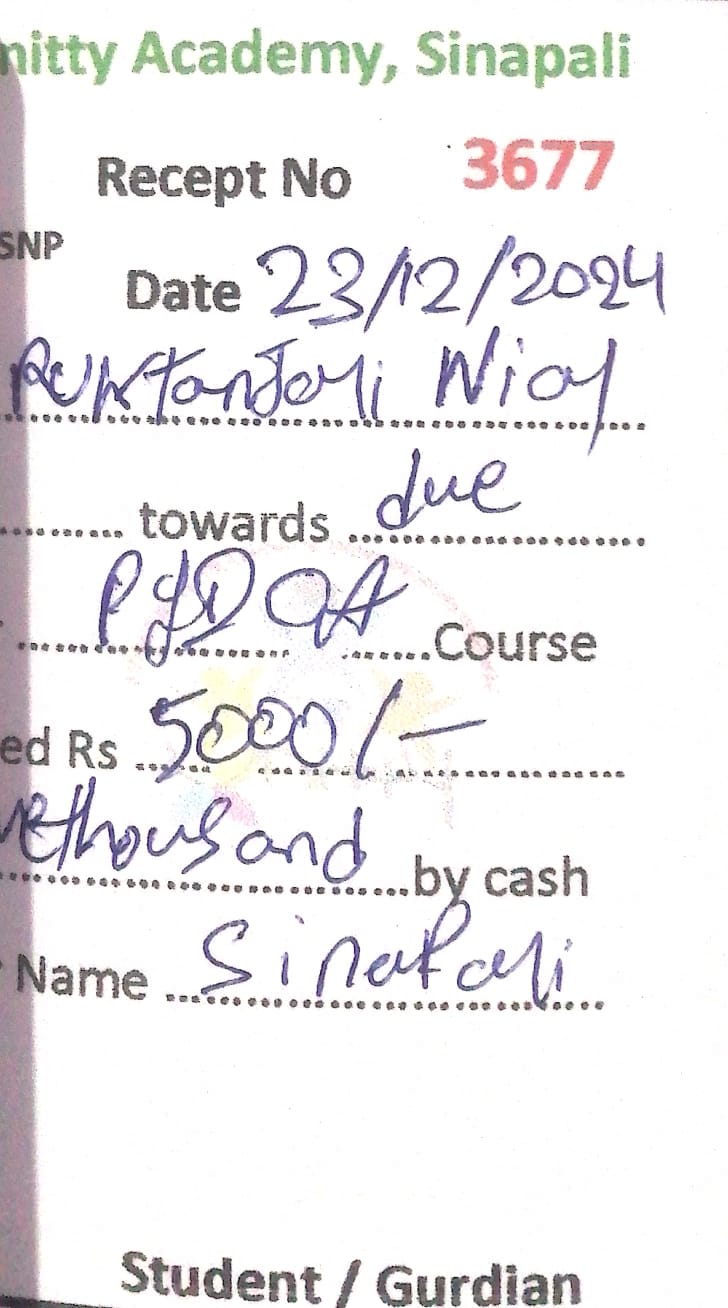 nitty Academy, Sinapali
Recept No 3677
SNP
Date 23/12/2024
Nial
towards due
Course
ed Rs 5000/-
ethousand by cash
Name Sinapali
Student / Gurdian